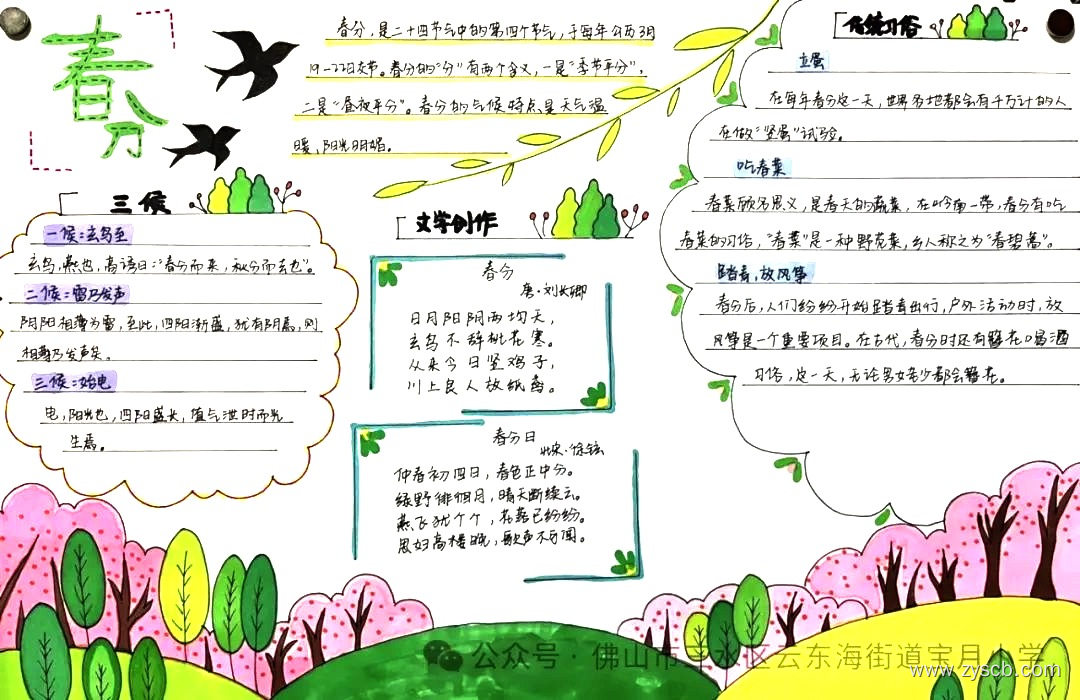 春分
春分，是二十四节气中的第四个节气，于每年公历3月
19-22日交节。春分的"分"有两个含义，一是"季节平分"，
二是"昼夜平分"。春分的气候特点是天气温
暖、阳光明媚。
三候
一候：玄鸟至
玄鸟，燕也，高诱曰："春分而来，秋分而去也"。
二候：雷乃发声
阴阳相薄为雷，至此，四阳渐盛，犹有阴焉，则
相薄乃发声矣。
三候：始电
电，阳光也，四阳盛长，值气泄时而光
生焉。
文学创作
春分
唐·刘长卿
日月阳阴两均天，
玄鸟不辞桃花寒。
从来今日竖鸡子，
川上良人放纸鸢。
春分日
徐铉
仲春初四日，春色正中分。
绿野徘徊月，晴天断续云。
燕飞犹个个，花落已纷纷。
思妇高楼晚，歌声不可闻。
传统习俗
立蛋
在每年春分这一天，世界各地都会有千万计的人
在做"竖蛋"试验。
吃春菜
春菜顾名思义，是春天的蔬菜，在岭南一带，春分有吃
春菜的习俗，"春菜"是一种野苋菜，乡人称之为"春碧蒿"。
踏青，放风筝
春分后，人们纷纷开始踏青出行，户外活动时，放
风筝是一个重要项目。在古代，春分时还有簪花喝酒
习俗，这一天，无论男女老少都会簪花。
公众号·佛山市三水区云东海街道宝月小学
www.zyscb.com